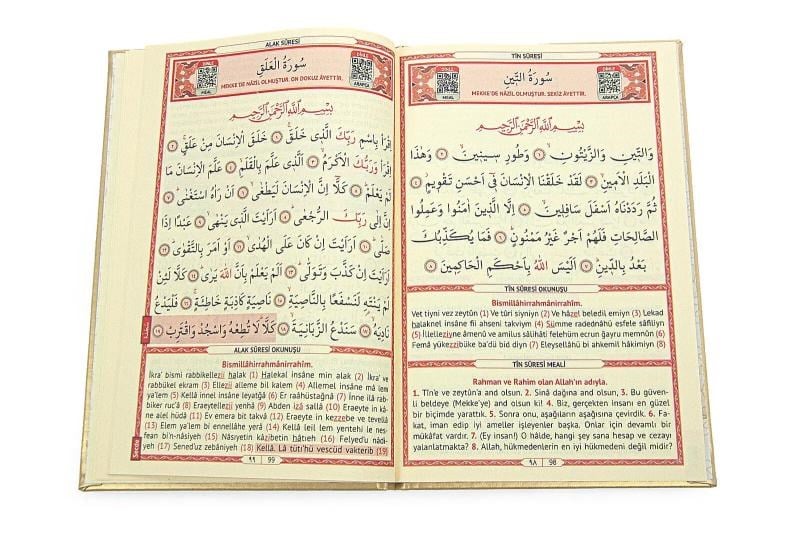 TİN SÛRESİ
DİNLE
سُورَةُ التِّينِ
MEKKE'DE NÂZİL OLMUŞTUR. SEKİZ ÂYETTİR.
MEAL
ARAPÇA
بِسْمِ اللهِ الرَّحْمٰنِ الرَّحِيمِ
وَالتِّينِ وَالزَّيْتُونِ ﴿١﴾ وَطُورِ سِينِينَ ﴿٢﴾ وَهٰذَا
الْبَلَدِ الْاَمِينِ ﴿٣﴾ لَقَدْ خَلَقْنَا الْاِنْسَانَ فِٓي اَحْسَنِ تَقْوِيمٍ ﴿٤﴾
ثُمَّ رَدَدْنَاهُ اَسْفَلَ سَافِلِينَ ﴿٥﴾ اِلَّا الَّذِينَ اٰمَنُوا وَعَمِلُوا
الصَّالِحَاتِ فَلَهُمْ اَجْرٌ غَيْرُ مَمْنُونٍ ﴿٦﴾ فَمَا يُكَذِّبُكَ
بَعْدُ بِالدِّينِ ﴿٧﴾ اَلَيْسَ اللهُ بِاَحْكَمِ الْحَاكِمِينَ ﴿٨﴾
TİN SÛRESİ OKUNUŞU
Bismillâhirrahmânirrahîm.
Vet tiyni vez zeytûn (1) Ve tûri siyniyn (2) Ve hâzel beledil emiyn (3) Lekad
halaknel insâne fii ahseni takviym (4) Sümme radednâhü esfele sâfiliyn
(5) İllelleziyne âmenû ve amilus sâlihâti felehüm ecrun ğayru memnûn (6)
Femâ yukezzibüke ba'dü bid diyn (7) Eleysellâhü bi ahkemil hâkimiyn (8)
TİN SÛRESİ MEALİ
Rahman ve Rahim olan Allah'ın adıyla.
1. Tîn'e ve zeytûn'a and olsun. 2. Sinâ dağına and olsun, 3. Bu güven-
li beldeye (Mekke'ye) and olsun ki! 4. Biz, gerçekten insanı en güzel
bir biçimde yarattık. 5. Sonra onu, aşağıların aşağısına çevirdik. 6. Fa-
kat, iman edip iyi ameller işleyenler başka. Onlar için devamlı bir
mükâfat vardır. 7. (Ey insan!) O hâlde, hangi şey sana hesap ve cezayı
yalanlatmakta? 8. Allah, hükmedenlerin en iyi hükmedeni değil midir?
٩٨ 98
ALAK SÛRESİ
DİNLE
سُورَةُ الْعَلَقِ
MEKKE'DE NÂZİL OLMUŞTUR. ON DOKUZ ÂYETTİR.
MEAL
ARAPÇA
بِسْمِ اللهِ الرَّحْمٰنِ الرَّحِيمِ
اِقْرَأْ بِاسْمِ رَبِّكَ الَّذِي خَلَقَ ﴿١﴾ خَلَقَ الْاِنْسَانَ مِنْ عَلَقٍ ﴿٢﴾
اِقْرَأْ وَرَبُّكَ الْاَكْرَمُ ﴿٣﴾ اَلَّذِي عَلَّمَ بِالْقَلَمِ ﴿٤﴾ عَلَّمَ الْاِنْسَانَ مَا
لَمْ يَعْلَمْ ﴿٥﴾ كَلَّٓا اِنَّ الْاِنْسَانَ لَيَطْغٰى ﴿٦﴾ اَنْ رَاٰهُ اسْتَغْنٰى ﴿٧﴾
اِنَّ اِلٰى رَبِّكَ الرُّجْعٰى ﴿٨﴾ اَرَاَيْتَ الَّذِي يَنْهٰى ﴿٩﴾ عَبْدًا اِذَا
صَلّٰى ﴿١٠﴾ اَرَاَيْتَ اِنْ كَانَ عَلَى الْهُدٰى ﴿١١﴾ اَوْ اَمَرَ بِالتَّقْوٰى ﴿١٢﴾
اَرَاَيْتَ اِنْ كَذَّبَ وَتَوَلّٰى ﴿١٣﴾ اَلَمْ يَعْلَمْ بِاَنَّ اللهَ يَرٰى ﴿١٤﴾ كَلَّا لَئِنْ
لَمْ يَنْتَهِ لَنَسْفَعًا بِالنَّاصِيَةِ ﴿١٥﴾ نَاصِيَةٍ كَاذِبَةٍ خَاطِئَةٍ ﴿١٦﴾ فَلْيَدْعُ
نَادِيَهُ ﴿١٧﴾ سَنَدْعُ الزَّبَانِيَةَ ﴿١٨﴾ كَلَّا لَا تُطِعْهُ وَاسْجُدْ وَاقْتَرِبْ ﴿١٩﴾
ALAK SÛRESİ OKUNUŞU
Bismillâhirrahmânirrahîm.
İkra' bismi rabbikellezii halak (1) Halekal insâne min alak (2) İkra' ve
rabbükel ekram (3) Ellezii alleme bil kalem (4) Allemel insâne mâ lem
ya'lem (5) Kellâ innel insâne leyatğâ (6) Er raâhüstağnâ (7) İnne ilâ rab-
bike ruc'â (8) Eraeytellezii yenhâ (9) Abden izâ sallâ (10) Eraeyte in kâ-
ne alel hüdâ (11) Ev emera bit takvâ (12) Eraeyte in kezzebe ve tevellâ
(13) Elem ya'lem bi ennellahe yerâ (14) Kellâ leil lem yentehi le nes-
fean bi'n-nâsiyeh (15) Nâsıyetin kâzibetin hâtıeh (16) Felyed'u nâdi-
yeh (17) Sened'uz zebâniyeh (18) Kellâ. Lâ tüti'hü vescüd vakterib (19)
Secde
٩٩ 99